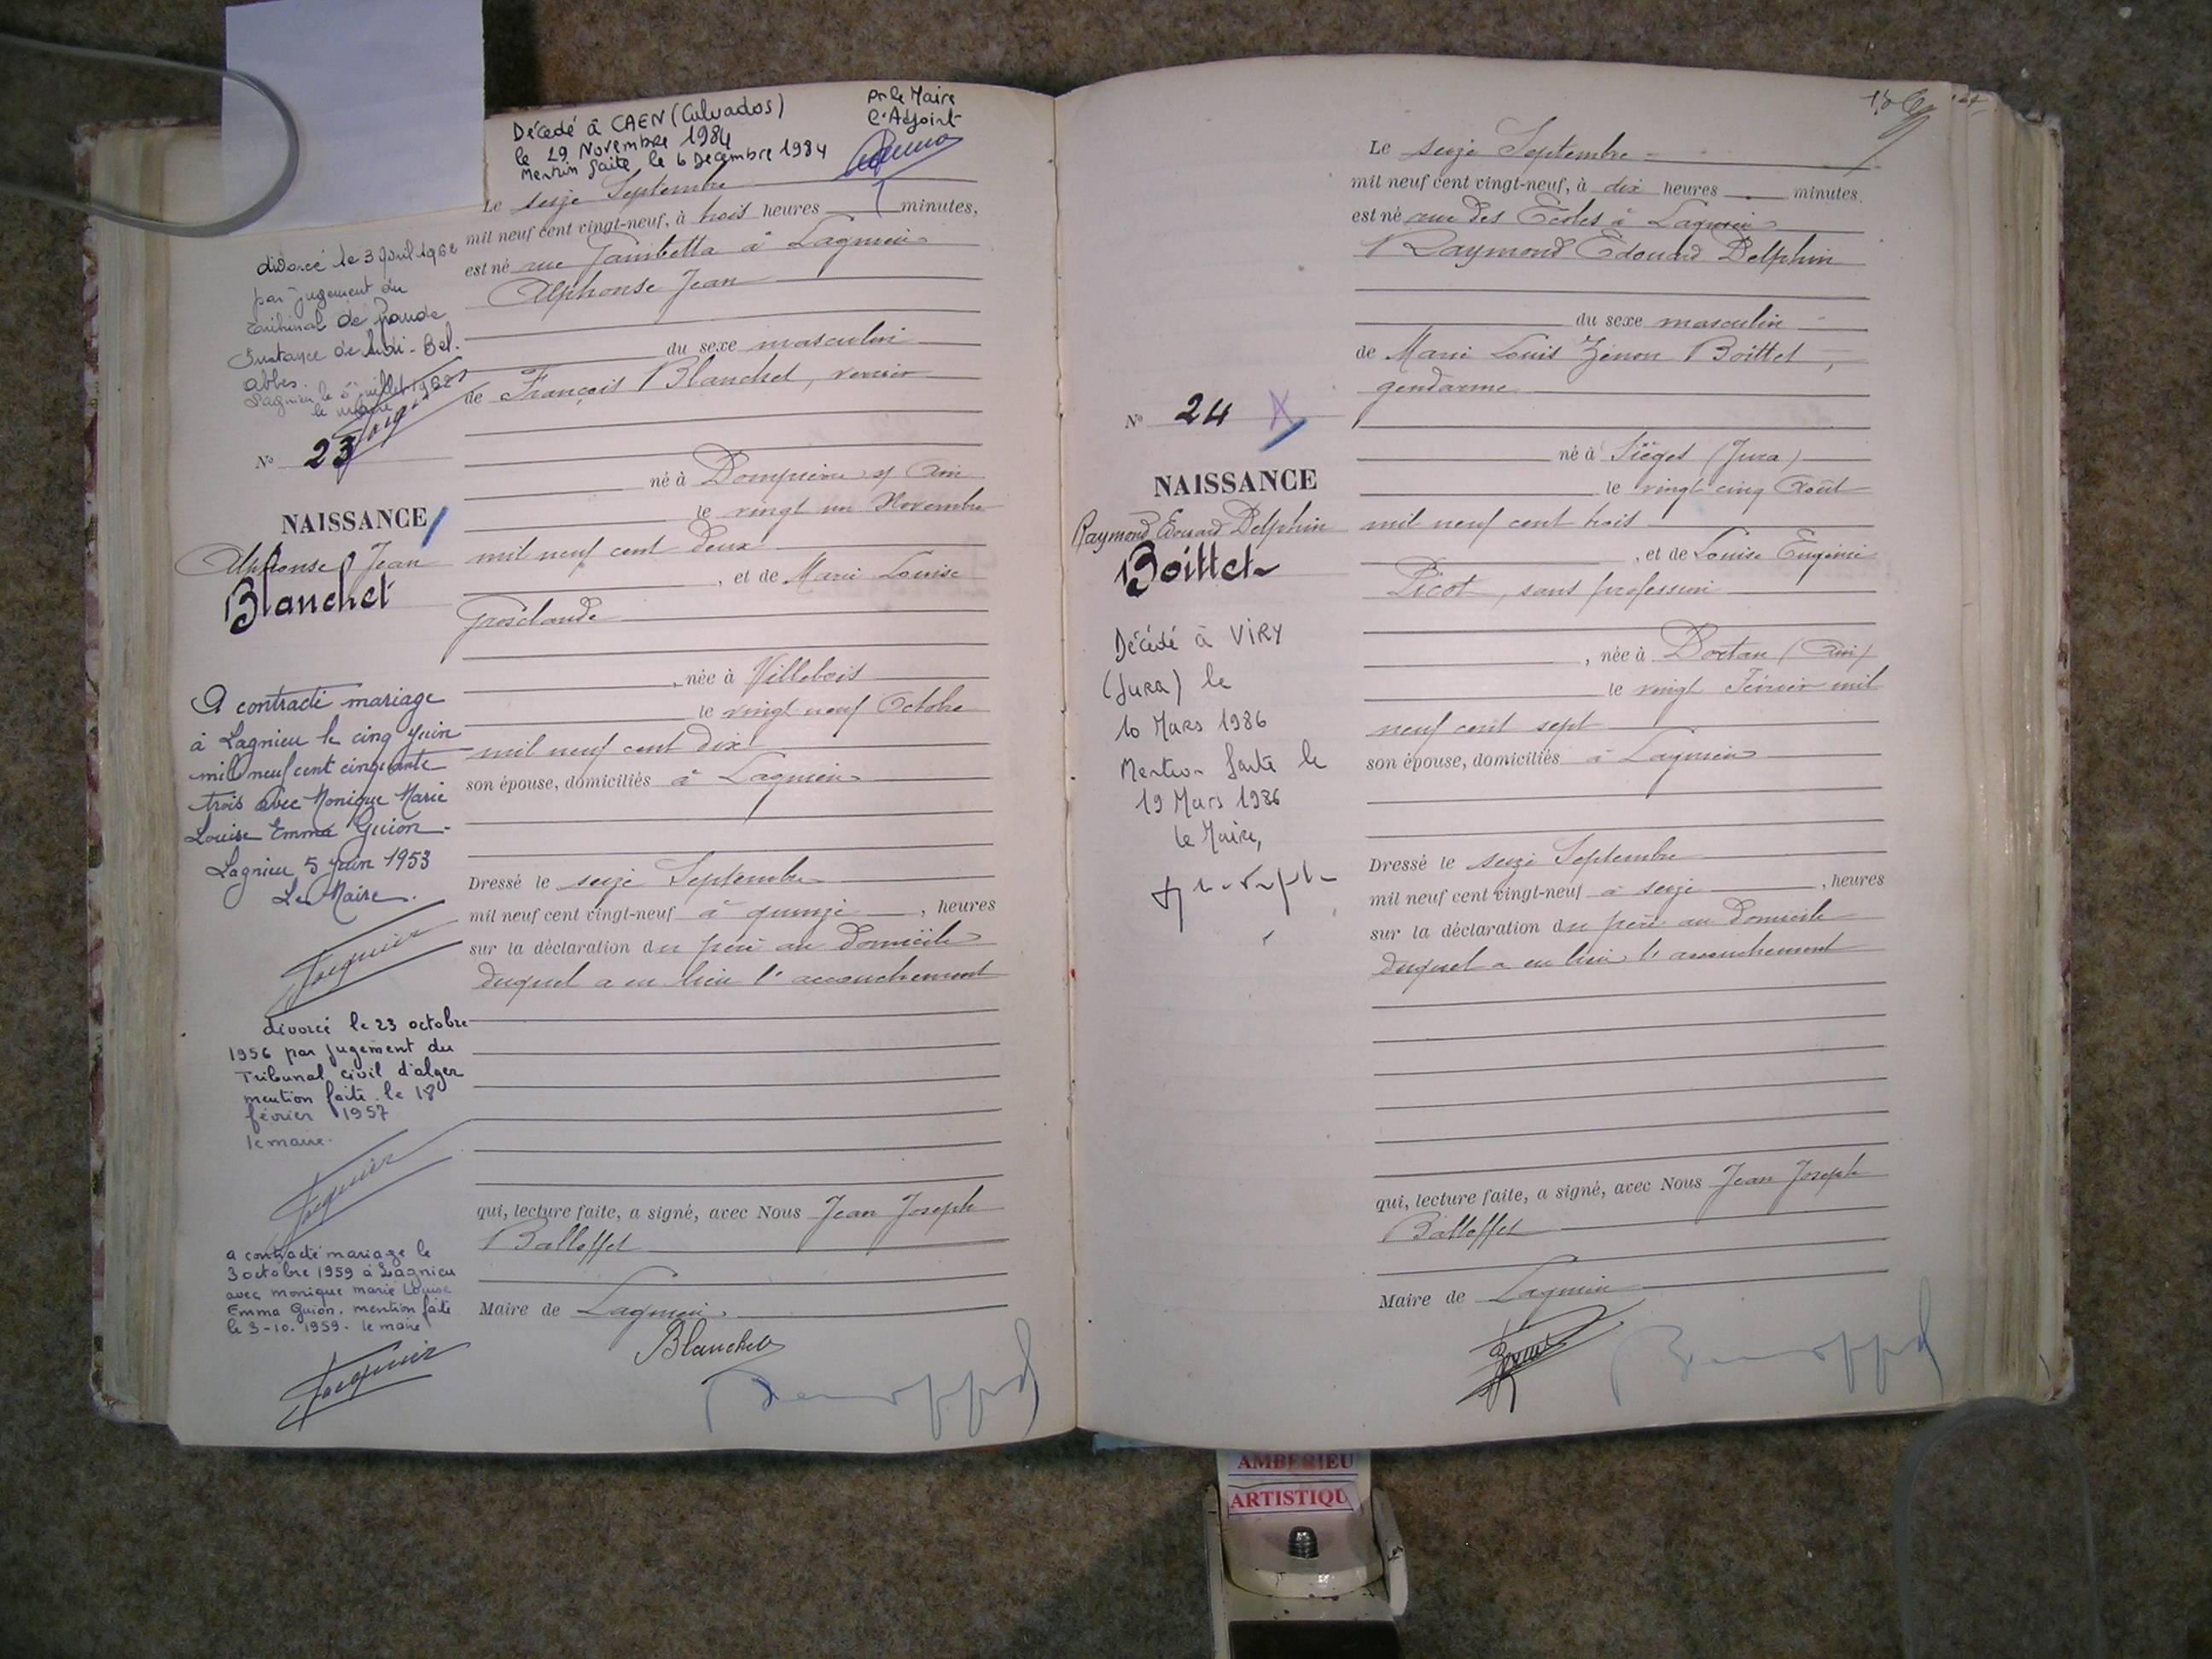 Décédé à CAEN (Calvados)
le 29 Novembre 1984
Mention faite le 6 Décembre 1984
Pr le Maire
L'Adjoint
Le seize Septembre
mil neuf cent vingt-neuf, à trois heures minutes,
est né rue Gambetta à Lagnieu
Alphonse Jean
du sexe masculin
de François Blanchet, verrier
né à Dompierre s/ Ain
le vingt un Novembre
mil neuf cent deux
, et de Marie Louise
Grosclaude
, née à Villebois
le vingt neuf Octobre
mil neuf cent dix
son épouse, domiciliés à Lagnieu
Dressé le seize Septembre
mil neuf cent vingt-neuf à quinze , heures
sur la déclaration du père au domicile
duquel a eu lieu l'accouchement
qui, lecture faite, a signé, avec Nous Jean Joseph
Balloffet
Maire de Lagnieu
Blanchet
divorcé le 3 Avril 1962
par jugement du
Tribunal de Grande
Instance de Sidi-Bel-
Abbès.
Lagnieu le 5 juillet
le maire
N° 23
NAISSANCE
Alphonse Jean
Blanchet
A contracté mariage
à Lagnieu le cinq Juin
mil neuf cent cinquante
trois avec Monique Marie
Louise Emma Guion-
Lagnieu 5 Juin 1953
Le Maire.
Jacquier
divorcé le 23 octobre
1956 par jugement du
Tribunal civil d'alger
mention faite le 18
février 1957
le maire.
Jacquier
a contracté mariage le
3 octobre 1959 à Lagnieu
avec monique marie Louise
Emma Guion. mention faite
le 3-10.1959. le maire
Jacquier
Le seize Septembre
mil neuf cent vingt-neuf, à dix heures minutes,
est né rue des Ecoles à Lagnieu
Raymond Edouard Delphin
du sexe masculin
de Marie Louis Zénon Boittet,
gendarme
né à Sièges (Jura)
le vingt cinq Août
mil neuf cent trois
, et de Louise Eugénie
Picot, sans profession
, née à Dortan (Ain)
le vingt Février mil
neuf cent sept
son épouse, domiciliés à Lagnieu
Dressé le seize Septembre
mil neuf cent vingt-neuf à seize , heures
sur la déclaration du père au domicile
duquel a eu lieu l'accouchement
qui, lecture faite, a signé, avec Nous Jean Joseph
Balloffet
Maire de Lagnieu
N° 24
NAISSANCE
Raymond Edouard Delphin
Boittet
Décédé à VIRY
(Jura) le
10 Mars 1986
Mention faite le
19 Mars 1986
le Maire,
AMBERIEU
ARTISTIQU